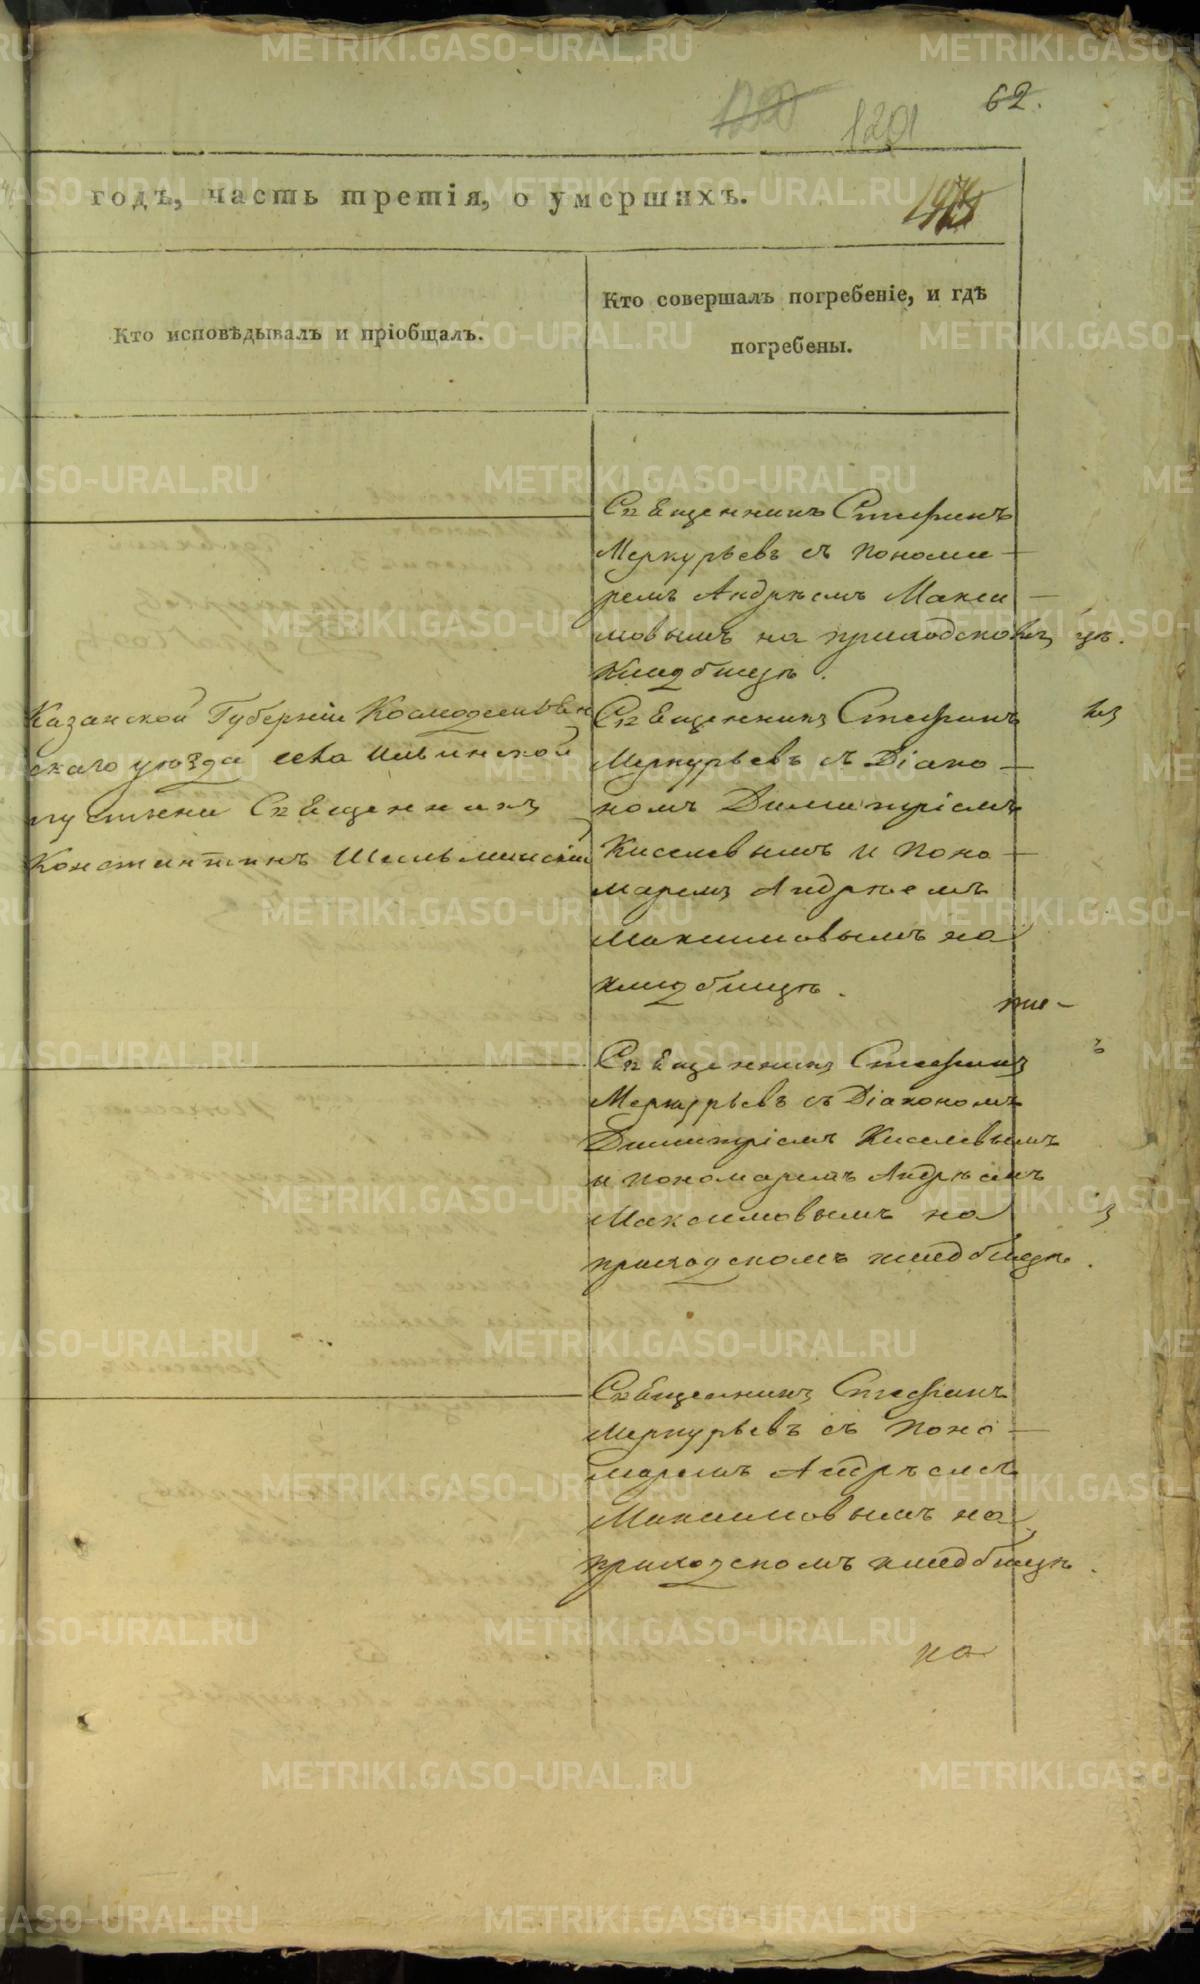 62.
1200
1201
годъ, часть третія, о умершихъ.
Кто исповѣдывалъ и пріобщалъ.
Кто совершалъ погребеніе, и гдѣ
погребены.
Священникъ Стефанъ
Меркурьевъ съ понома-
ремъ Андрѣемъ Макси-
мовымъ на приходскомъ
кладбищѣ.
Казанской Губерніи Космодемьян
скаго уѣзда села Ильинской
пустыни Священникъ
Константинъ
Священникъ Стефанъ
Меркурьевъ съ Діако-
номъ Димитріемъ
Киселевымъ и поно-
маремъ Андрѣемъ
Максимовымъ на
кладбищѣ.
Священникъ Стефанъ
Меркурьевъ съ Діакономъ
Димитріемъ Киселевымъ
и пономаремъ Андрѣемъ
Максимовымъ на
приходскомъ кладбищѣ.
Священникъ Стефанъ
Меркурьевъ съ поно-
маремъ Андрѣемъ
Максимовымъ на
приходскомъ кладбищѣ.
на
METRIKI.GASO-URAL.RU